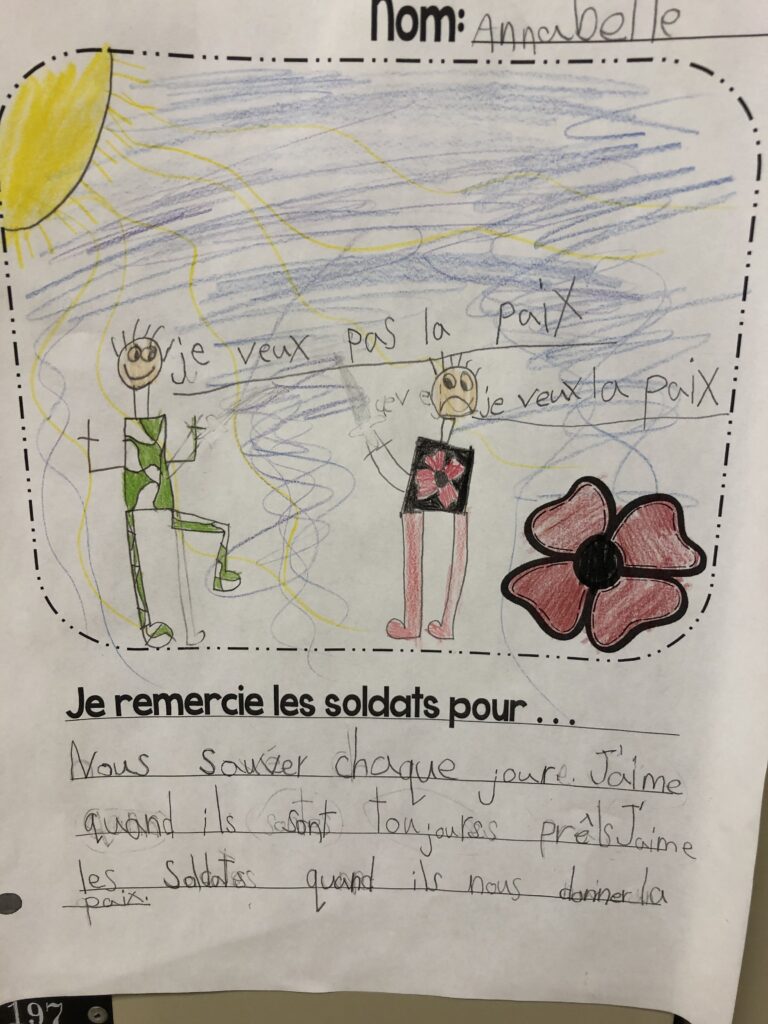 Nom: Annabelle
je veux pas la paix
je veux la paix
Je remercie les soldats pour ...
Nous sauver chaque joure. J'aime
quand ils sont toujourss prêts J'aime
les Soldats quand ils nous donner la
paix.
197